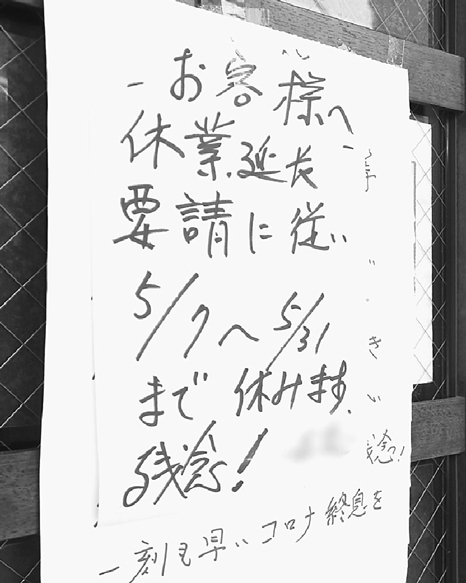 －お客様へ－
休業延長
要請に従い
5/7〜5/31
まで休みます。
残念！
一刻も早いコロナ終息を